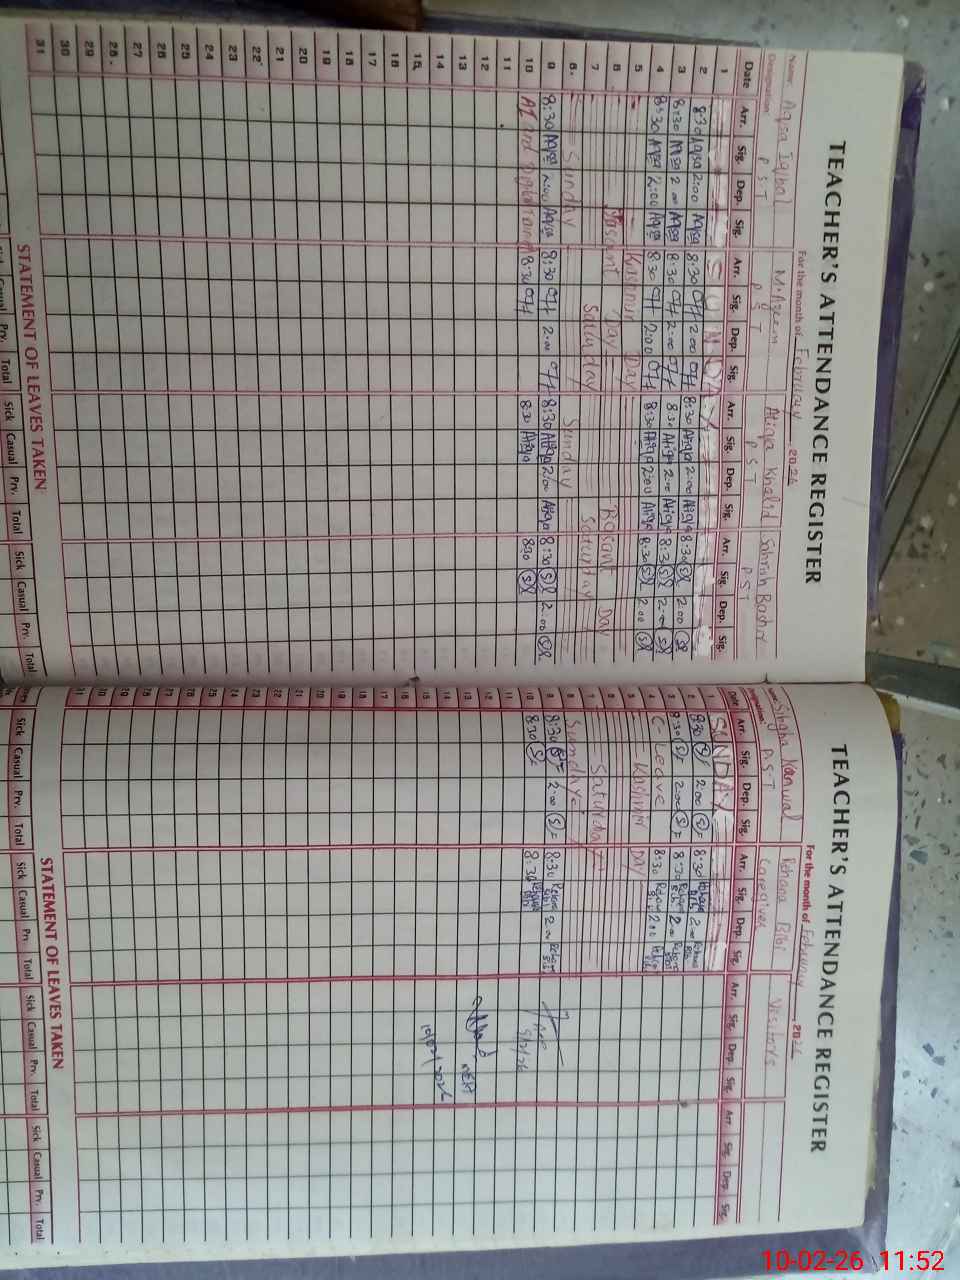 TEACHER'S ATTENDANCE REGISTER
For the month of February 2026
Name: Aqsa Iqbal M. Azeem Atiqa Khalid Sehrish Bashir
Designation PST PST PST PST
Date Arr. Sig. Dep. Sig. Arr. Sig. Dep. Sig. Arr. Sig. Dep. Sig. Arr. Sig. Dep. Sig.
1 SUNDAY
2 8:30 Aqsa 2:00 Aqsa 8:30 2:00 8:30 Atiqa 2:00 Atiqa 8:30 2:00
3 8:30 Aqsa 2:00 Aqsa 8:30 2:00 8:30 Atiqa 2:00 Atiqa 8:30 2:00
4 8:30 Aqsa 2:00 Aqsa 8:30 2:00 8:30 Atiqa 2:00 Atiqa 8:30 2:00
5 Kashmir Day
6 Basant Day Basant Day
7 Saturday Saturday
8. Sunday Sunday
9 8:30 Aqsa 2:00 Aqsa 8:30 2:00 8:30 Atiqa 2:00 Atiqa 8:30 2:00
10 AI and Digital 8:30 8:30 Atiqa 8:30
11
12
13
14
15
16
17
18
19
20
21
22
23
24
25
26
27
28
29
30
31
STATEMENT OF LEAVES TAKEN
Sick Casual Prv. Total Sick Casual Prv. Total Sick Casual Prv. Total
TEACHER'S ATTENDANCE REGISTER
For the month of February 2026
Name: Kanwal Rehana Bibi Visitors
Designation: P.S.T Caregiver
Date Arr. Sig. Dep. Sig. Arr. Sig. Dep. Sig. Arr. Sig. Dep. Sig. Arr. Sig. Dep. Sig.
1 SUNDAY
2 8:30 2:00 8:30 Rehana Bibi 2:00 Rehana Bibi
3 8:30 2:00 8:30 Rehana Bibi 2:00 Rehana Bibi
4 C-Leave 8:30 Rehana Bibi 2:00 Rehana Bibi
5 Kashmir Day
6
7 Saturday
8 Sunday
9 8:30 2:00 8:30 Rehana Bibi 2:00 Rehana Bibi
10 8:30 8:30 Rehana Bibi 9/2/26
11
12
13
14
15 10/02/2026
16
17
18
19
20
21
22
23
24
25
26
27
28
29
30
31
STATEMENT OF LEAVES TAKEN
Sick Casual Prv. Total Sick Casual Prv. Total Sick Casual Prv. Total Sick Casual Prv. Total
10-02-26 11:52